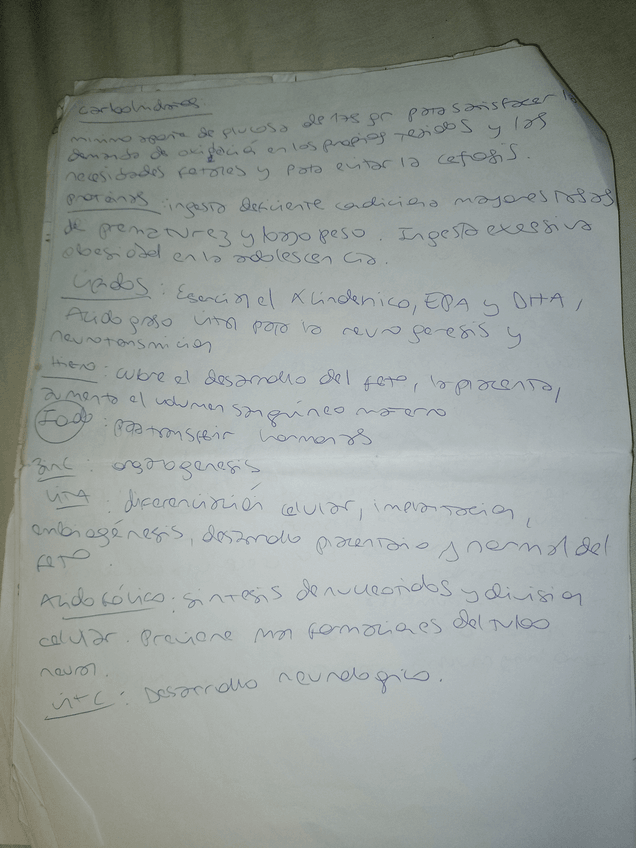 Carbohidratos.
minimo aporte de glucosa de 175 gr para satisfacer la
demanda de oxidación en los propios tejidos y las
necesidades fetales y para evitar la cetosis.
proteinas ingesta deficiente condiciona mayores tasas
de prematurez y bajo peso. Ingesta excesiva
obesidad en la adolescencia.
Lípidos: Esencial el Linolenico, EPA y DHA,
Acido graso vital para la neurogenesis y
neurotransmicion
Hierro: cubre el desarrollo del feto, la placenta,
aumenta el volumen sanguineo materno
Iodo: para transferir hormonas
zinc: organogenesis
vit A: diferenciación celular, implantacion,
embriogénesis, desarrollo placentario y normal del
feto.
Acido fólico: sintesis de nucleotidos y division
celular. Previene mal formaciones del tubo
neural.
vit C: Desarrollo neurologico.